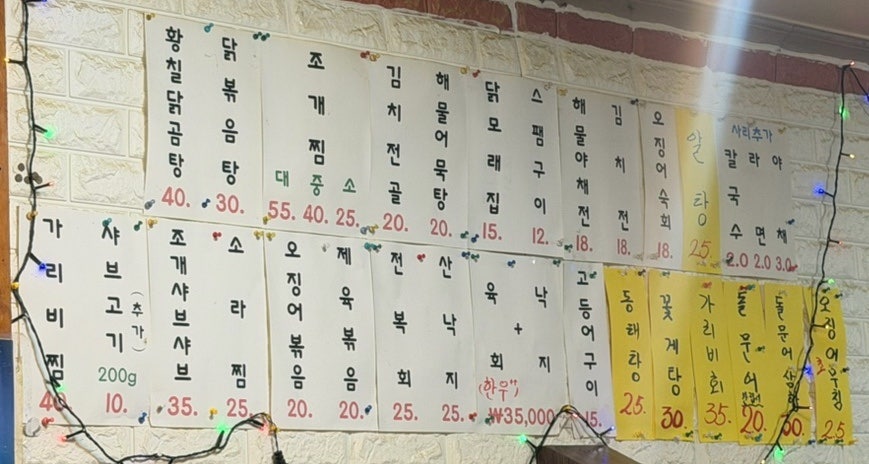 황칠닭곰탕 40.
닭볶음탕 30.
조개찜 대 중 소 55. 40. 25.
김치전골 20.
해물어묵탕 20.
닭모래집 15.
스팸구이 12.
해물야채전 18.
김치전 18.
오징어숙회 18.
알탕 25.
사리추가
칼국수 2.0
라면 2.0
야채 3.0
가리비찜 40
샤브고기 (추가) 200g 10.
조개샤브샤브 35.
소라찜 25.
오징어볶음 20.
제육볶음 20.
전복회 25.
산낙지 25.
육회 + 낙지 (한우) ₩35,000
고등어구이 15.
동태탕 25.
꽃게탕 30.
가리비회 35.
돌문어 20.
돌문어
오징어 25